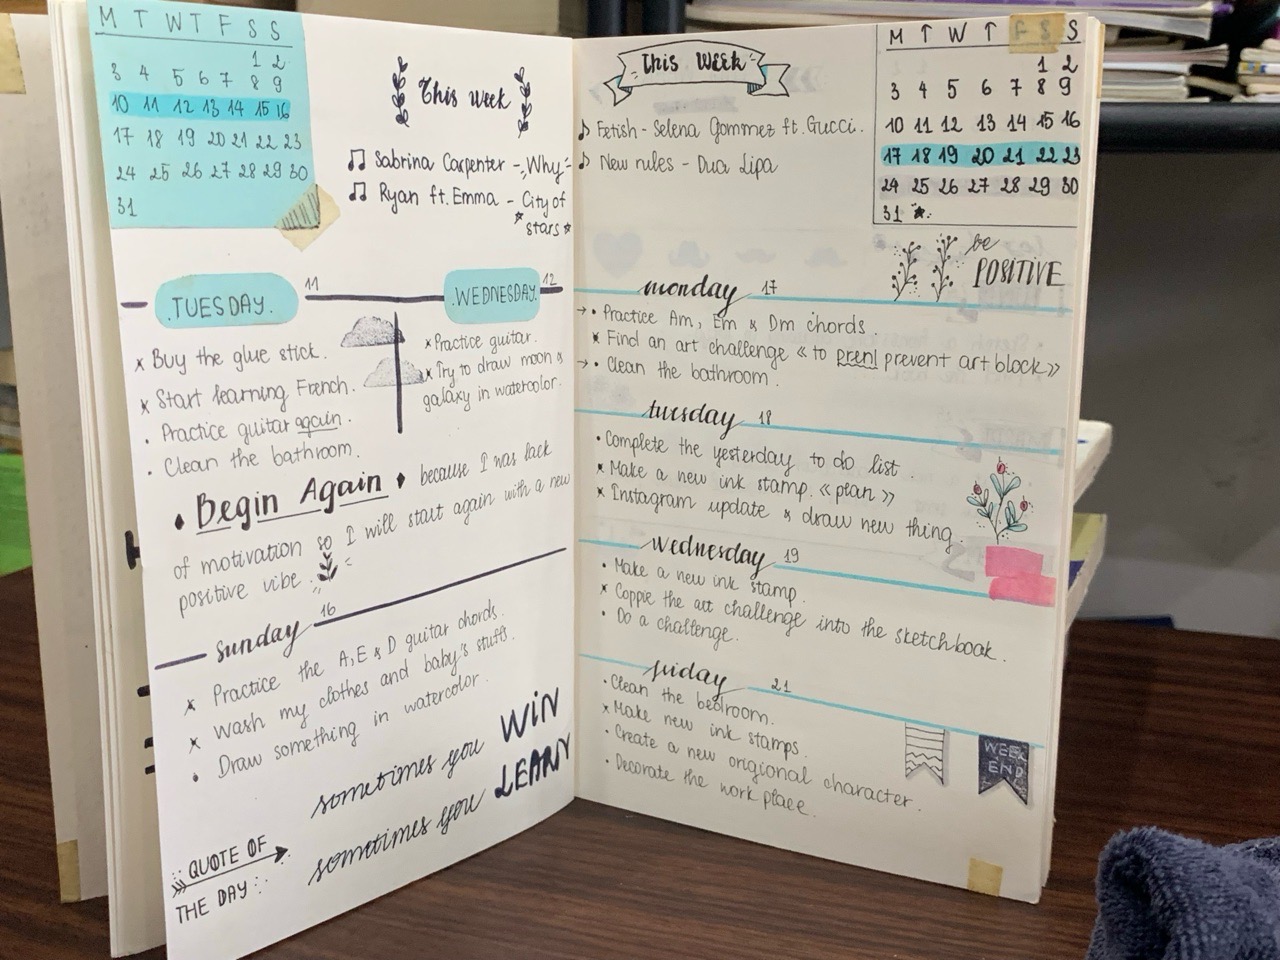 M T W T F S S
1 2
3 4 5 6 7 8 9
10 11 12 13 14 15 16
17 18 19 20 21 22 23
24 25 26 27 28 29 30
31
This Week
Sabrina Carpenter - Why
Ryan ft. Emma - City of
stars
TUESDAY. 11
x Buy the glue stick.
x Start learning French.
. Practice guitar again.
. Clean the bathroom.
WEDNESDAY 12
x Practice guitar.
x Try to draw moon &
galaxy in watercolor.
Begin Again because I was lack
of motivation so I will start again with a new
positive vibe.
sunday 16
x Practice the A, E & D guitar chords.
x Wash my clothes and baby's stuffs.
• Draw something in watercolor.
sometimes you WIN
sometimes you LEARN
QUOTE OF
THE DAY
This Week
Fetish - Selena Gommez ft. Gucci.
New rules - Dua Lipa
M T W T F S S
1 2
3 4 5 6 7 8 9
10 11 12 13 14 15 16
17 18 19 20 21 22 23
24 25 26 27 28 29 30
31
be
POSITIVE
monday 17
→ • Practice Am, Em & Dm chords.
x Find an art challenge « to prevent art block »
→ • Clean the bathroom.
tuesday 18
• Complete the yesterday to do list.
x Make a new ink stamp. « plan »
x Instagram update & draw new thing.
wednesday 19
• Make a new ink stamp.
x Coppie the art challenge into the sketchbook.
• Do a challenge.
friday 21
• Clean the bedroom.
x Make new ink stamps.
• Create a new origional character.
• Decorate the work place.
WEEK
END